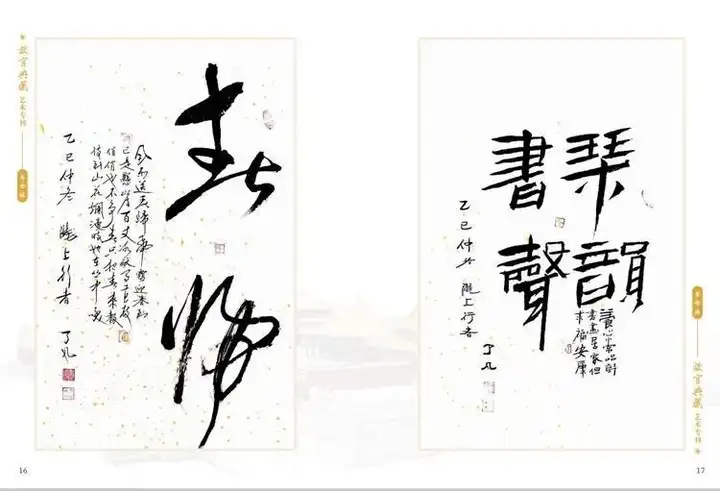 故宫典藏
艺术专刊
春归
风雨送春歸飛雪迎春到
已是悬崖百丈冰犹有花枝
俏俏也不争春只把春来报
待到山花烂漫时她在丛中笑
乙巳仲冬 陇上行者 丁凡
16
琴韻
書聲
養心常吟詩
書畫居家但
求福安康
乙巳仲冬 陇上行者 丁凡
故宫典藏
艺术专刊
17